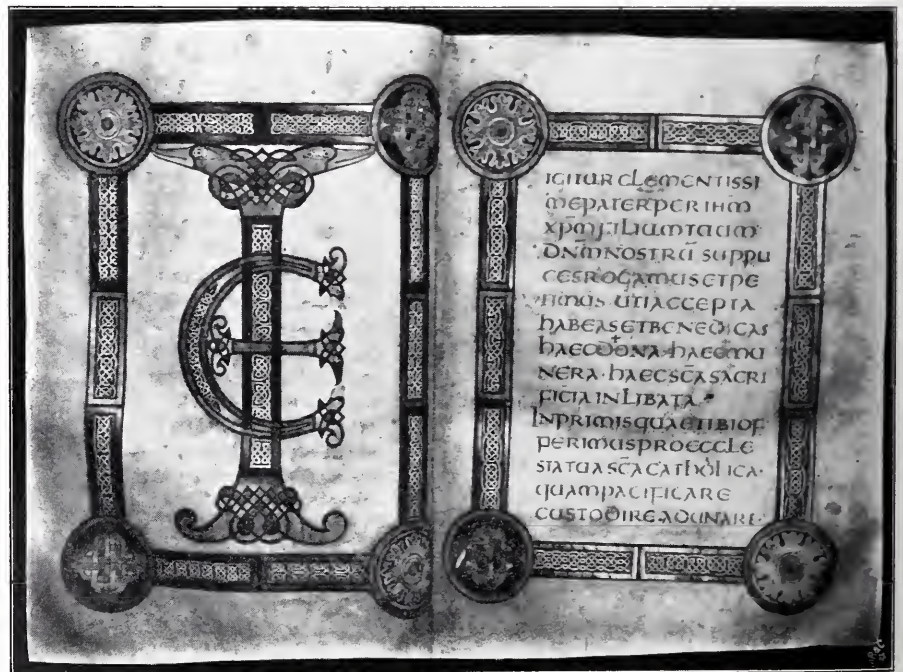 TE
IGITUR CLEMENTISSI
ME PATER PER IHM̄
XPM̄ FILIUM TUUM
DN̄M NOSTRŪ SUPPLI
CES ROGAMUS ET PE
TIMUS UTI ACCEPTA
HABEAS ET BENEDICAS
HAEC DONA· HAEC MU
NERA· HAEC SC̄A SACRI
FICIA INLIBATA·
INPRIMIS QUAE TIBI OF
FERIMUS PRO ECCLE
SIA TUA SC̄A CATHOLICA·
QUAM PACIFICARE
CUSTODIRE ADUNARE·